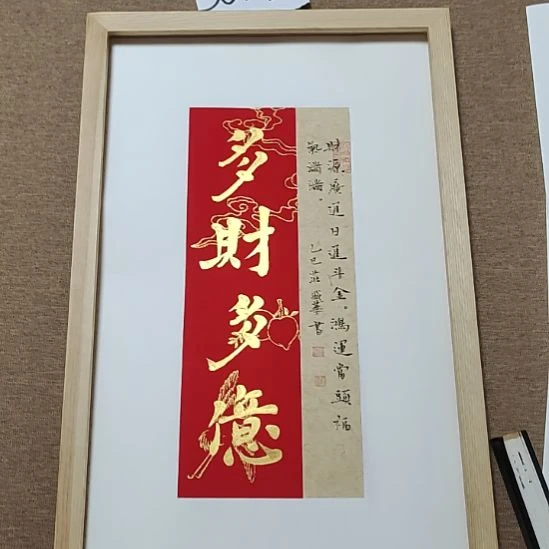 多財多億
財源廣進日進斗金。鴻運當頭福
氣滿滿。
乙巳 莊 盛華 書